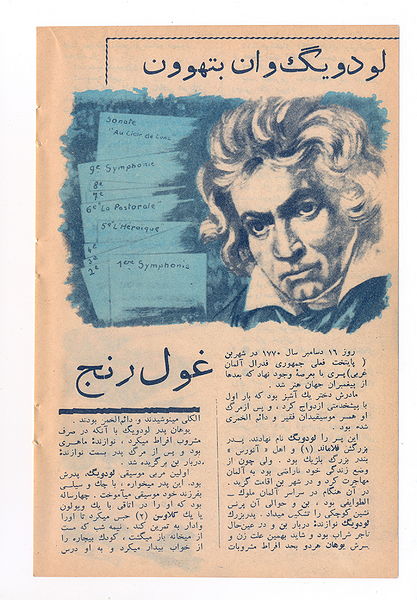 لودویگ وان بتهوون
Sonate
"Au Clair de Lune
9e Symphonie
8e
7e
6e "La Pastorale"
5e L'Heroique
4e
3e
2e
1ere Symphonie
غول رنج
روز ۱۶ دسامبر سال ۱۷۷۰ در شهر بن
( پایتخت فعلی جمهوری فدرال آلمان
غربی) پسری پا بعرصهٔ وجود نهاد که بعدها
از پیغمبران جهان هنر شد .
مادرش دختر یک آشپز بود که بار اول
با پیشخدمتی ازدواج کرد ، و پس از مرگ
او همسر موسیقیدان فقیر و دائم الخمری
بود .
این پسر را لودویگ نام نهادند. پدر
بزرگش فلاماند (۱) و اهل « آنورس »
بندر بزرگ بلژیک بود . ولی چون از
وضع زندگی خود ناراضی بود به آلمان
مهاجرت کرد و در شهر بن اقامت گزید.
در آن هنگام در سراسر آلمان ملوک
الطوایفی بود ، بن و حوالی آن پرنس
نشین کوچکی را تشکیل میداد . پدربزرگ
لودویگ نوازندهٔ دربار بن و در عین‌حال
تاجر شراب بود و شاید بهمین علت زن و
پسرش یوهان هردو بحد افراط مشروبات
الکلی مینوشیدند و دائم‌الخمر بودند .
یوهان پدر لودویگ با آنکه در صرف
مشروب افراط میکرد ، نوازندهٔ ماهری
بود و پس از مرگ پدر بسمت نوازندهٔ
دربار بن برگزیده شد .
اولین مربی موسیقی لودویگ، پدرش
بود. این پدر میخواره ، با چک و سیلی
بفرزند خود موسیقی میآموخت . چهارساله
بود که او را در اتاقی با یک ویولون
یا یک کلاوسن (۲) حبس میکرد تا اورا
وادار به تمرین کند . نیمه شب که مست
از میخانه باز میگشت ، کودک بیچاره را
از خواب بیدار میکرد و به او درس